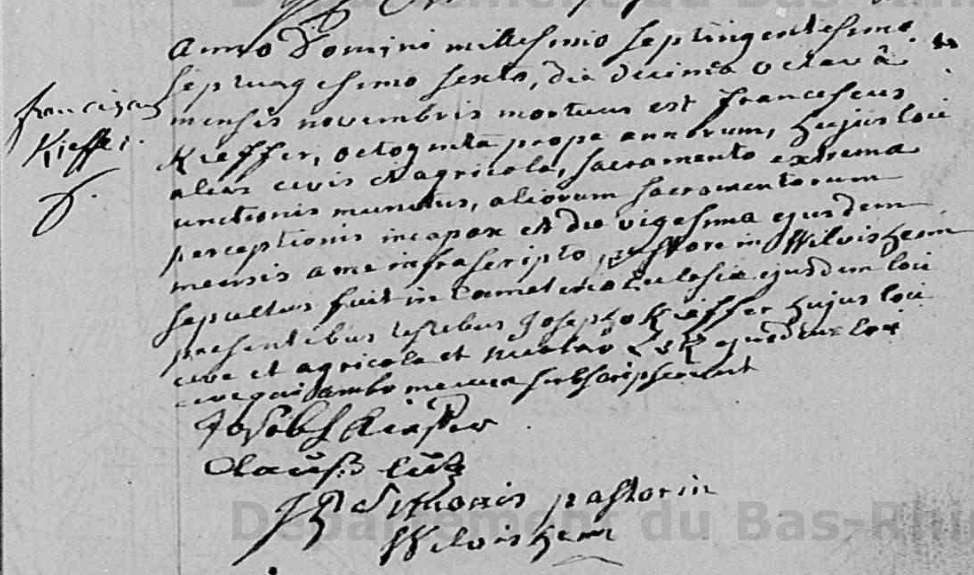 Anno Domini millesimo septingentesimo
septuagesimo sexto, die decima octavâ
mensis novembris mortuus est francescus
Kieffer, octoginta prope annorum, hujus loci
alias civis et agricola, sacramento extrema
unctionis munitus, aliorum sacramentorum
perceptionis incapax et die vigesima ejusdem
mensis a me infrascripto, pastore in Wilvisheim
sepultus fuit in Cometerio Ecclesiæ ejusdem loci
presentibus testibus Josepho Kieffer hujus loci
cive et agricola et Nicolao Lutz ejusdem loci
cive qui ambo mecum subscripserunt
franciscus
Kieffer.
Joseph Kieffer
Clauß lutz
pastor in
Wilvisheim
Département du Bas-Rhin
Département du Bas-Rhin